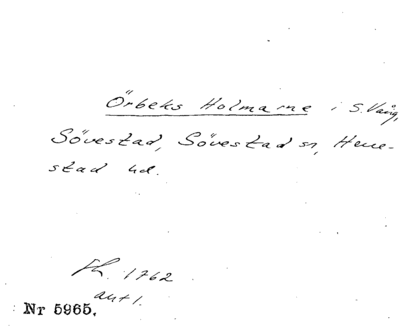 Örbeks Holmarne i S. Vång,
Sövestad, Sövestad sn, Herre-
stad hd.
Sk. 1762
akt 1.
Nr 5965.